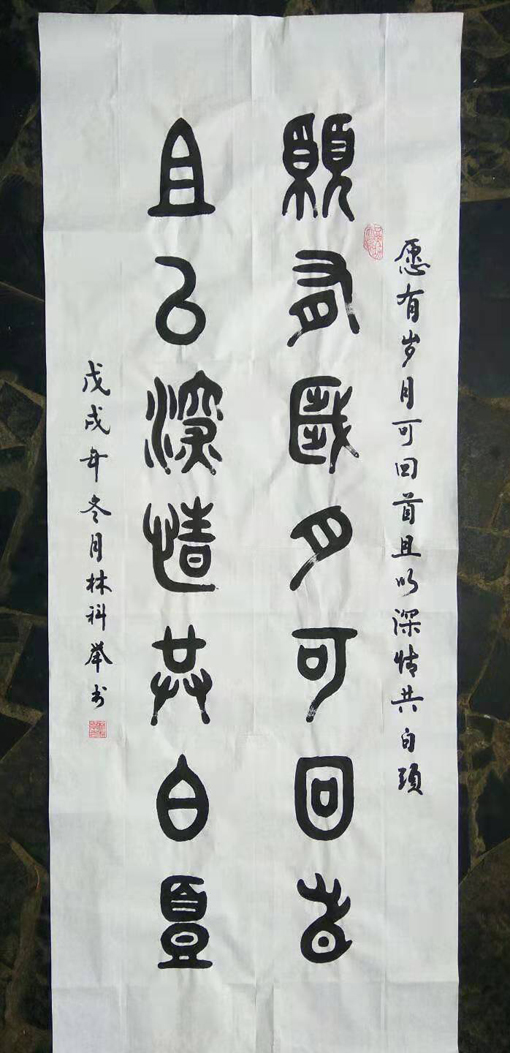 愿有岁月可回首且以深情共白頭
願有歲月可回首
且以深情共白頭
戊戌年冬月林科举书